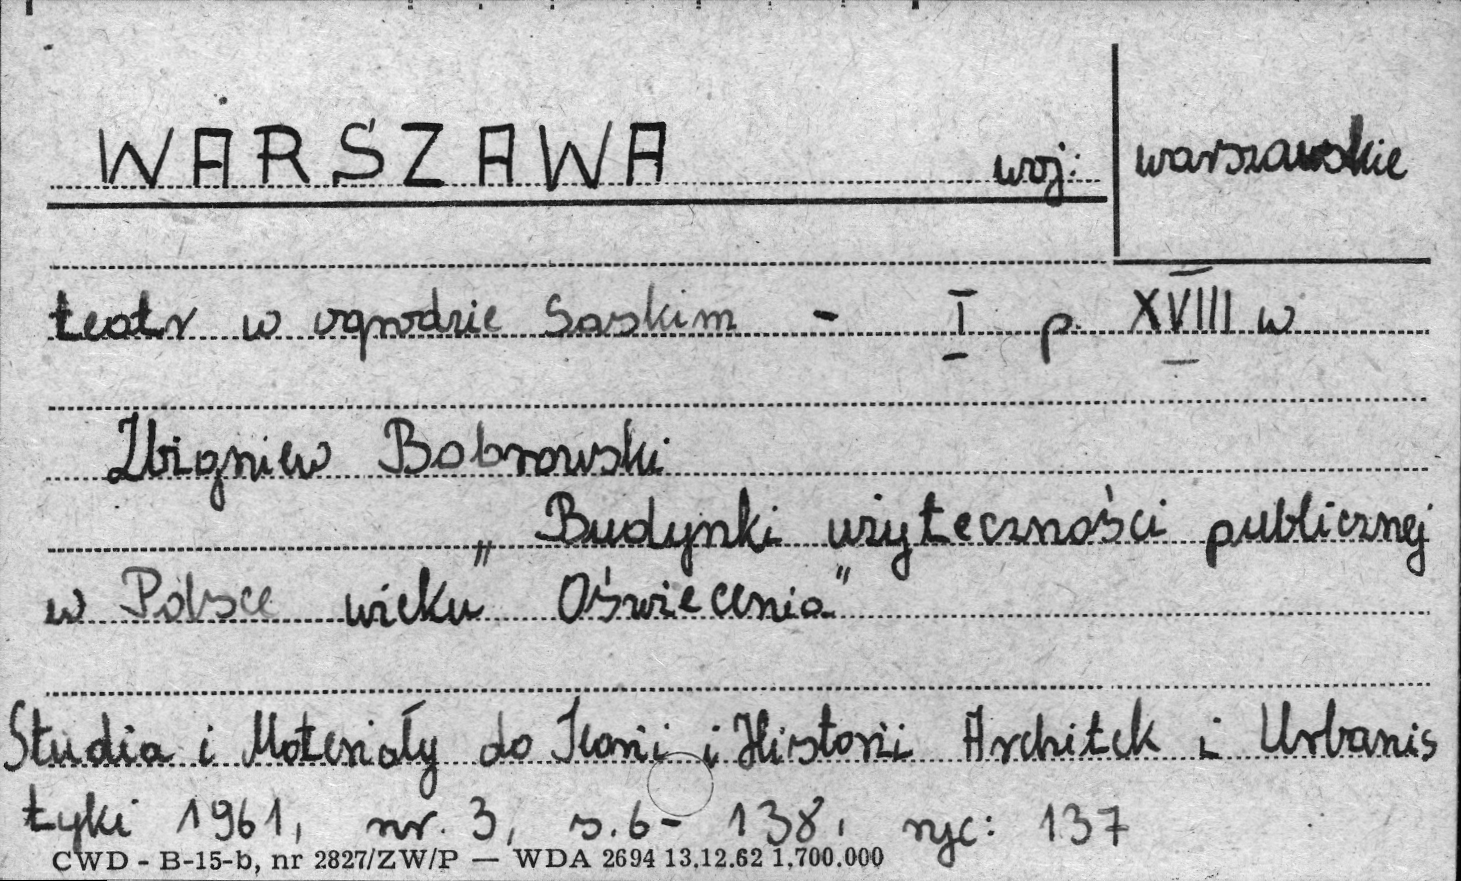 WARSZAWA woj: warszawskie
teatr w ogrodzie Saskim - I p. XVIII w
Zbigniew Bobrowski
„Budynki użyteczności publicznej
w Polsce wieku Oświecenia"
Studia i Materiały do Teorii i Historii Architek i Urbanis
tyki 1961, nr. 3, s. 6 - 138, ryc: 137
CWD - B-15-b, nr 2827/ZW/P — WDA 2694 13.12.62 1.700.000